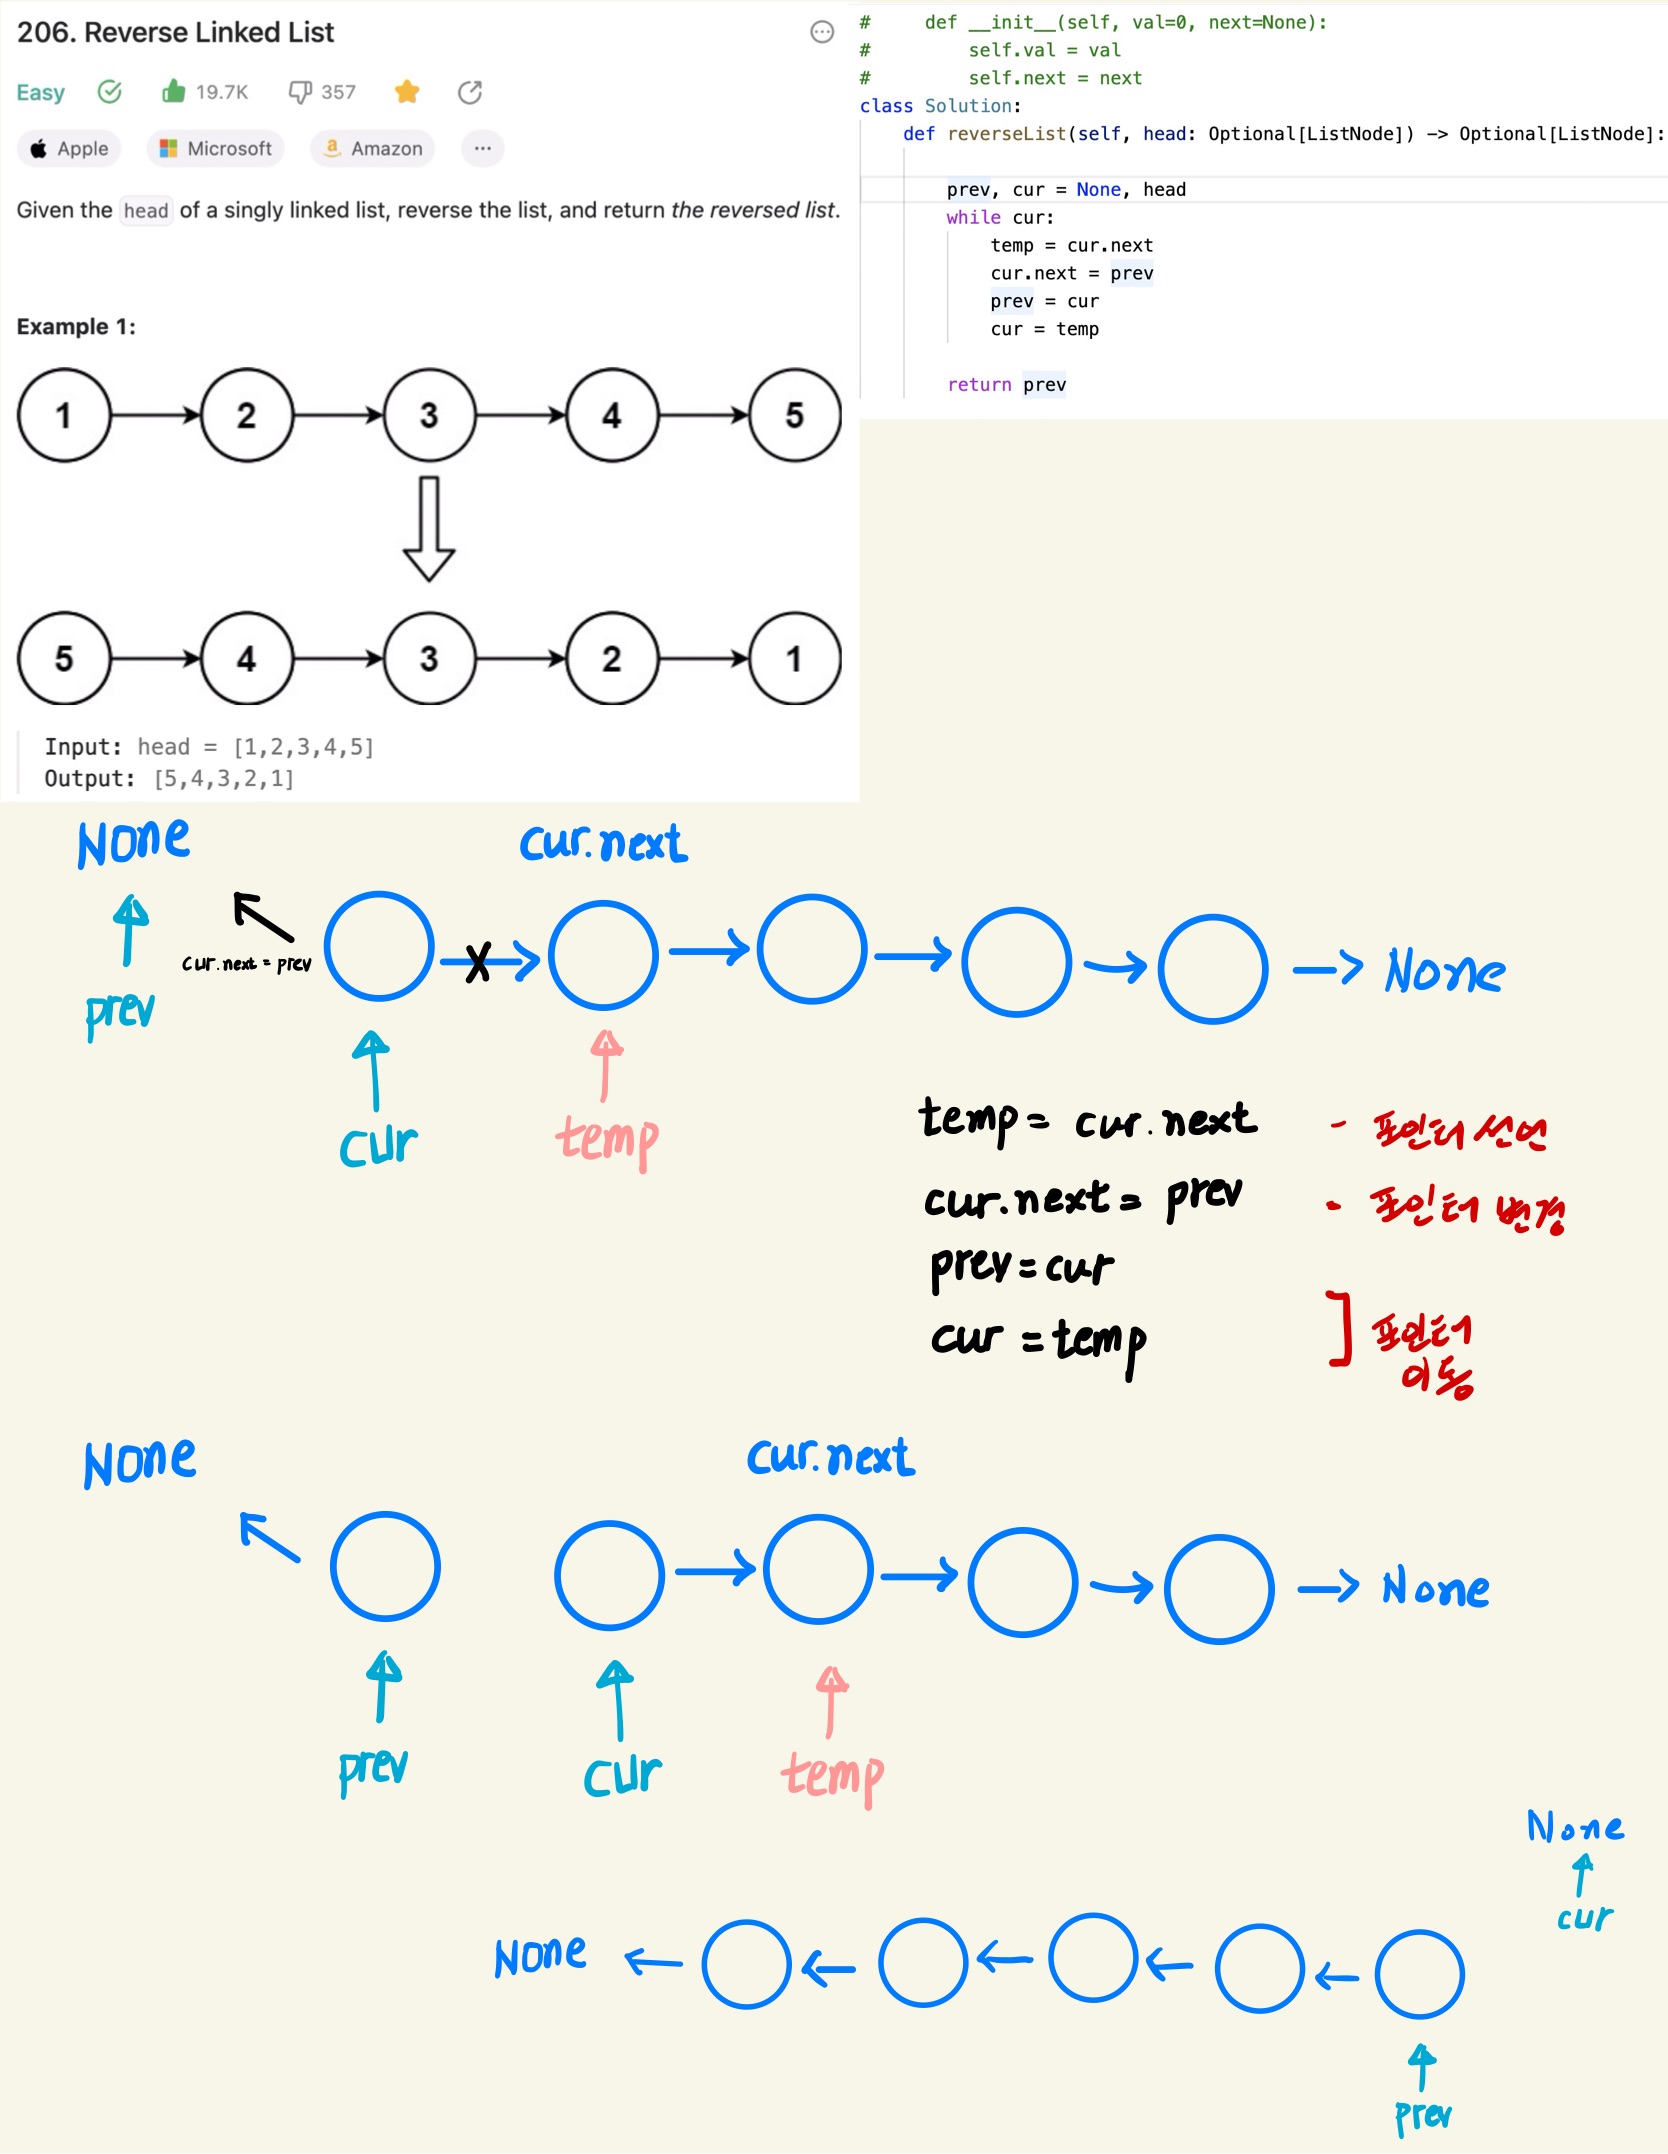 206. Reverse Linked List
Easy 19.7K 357
Apple Microsoft Amazon ...
Given the head of a singly linked list, reverse the list, and return the reversed list.
Example 1:
1 2 3 4 5
5 4 3 2 1
Input: head = [1,2,3,4,5]
Output: [5,4,3,2,1]
#     def __init__(self, val=0, next=None):
#         self.val = val
#         self.next = next
class Solution:
    def reverseList(self, head: Optional[ListNode]) -> Optional[ListNode]:
        prev, cur = None, head
        while cur:
            temp = cur.next
            cur.next = prev
            prev = cur
            cur = temp
        return prev
None cur.next
cur.next = prev
None
prev
cur temp
temp = cur.next - 포인터 선언
cur.next = prev - 포인터 변경
prev = cur
cur = temp ] 포인터
이동
None cur.next
None
prev cur temp
None
cur
None
prev